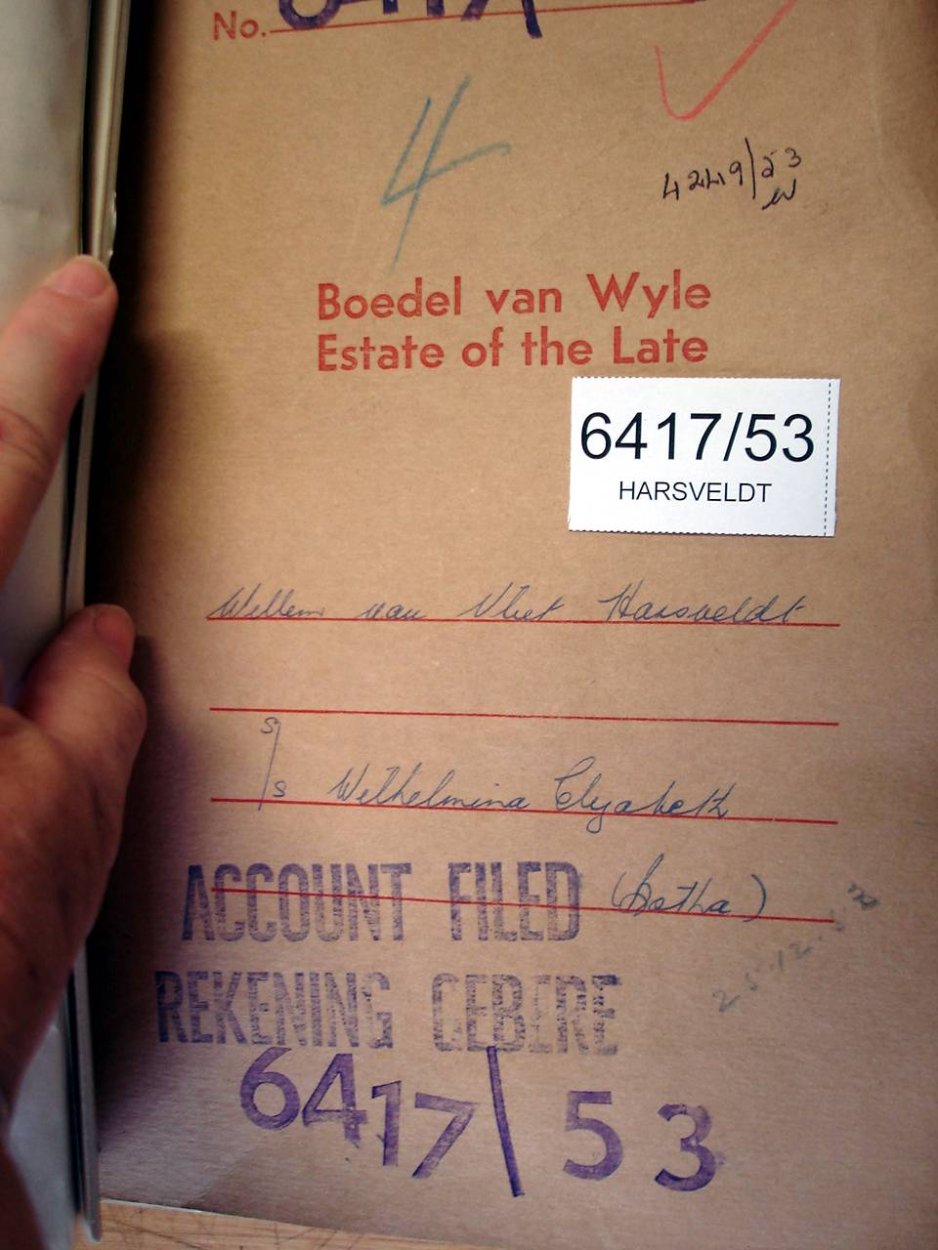 No. 6417
4
4249/53
Boedel van Wyle
Estate of the Late
6417/53
HARSVELDT
Willem van Vliet Harsveldt
s/s Wilhelmina Elyzabeth
ACCOUNT FILED
REKENING
6417/53